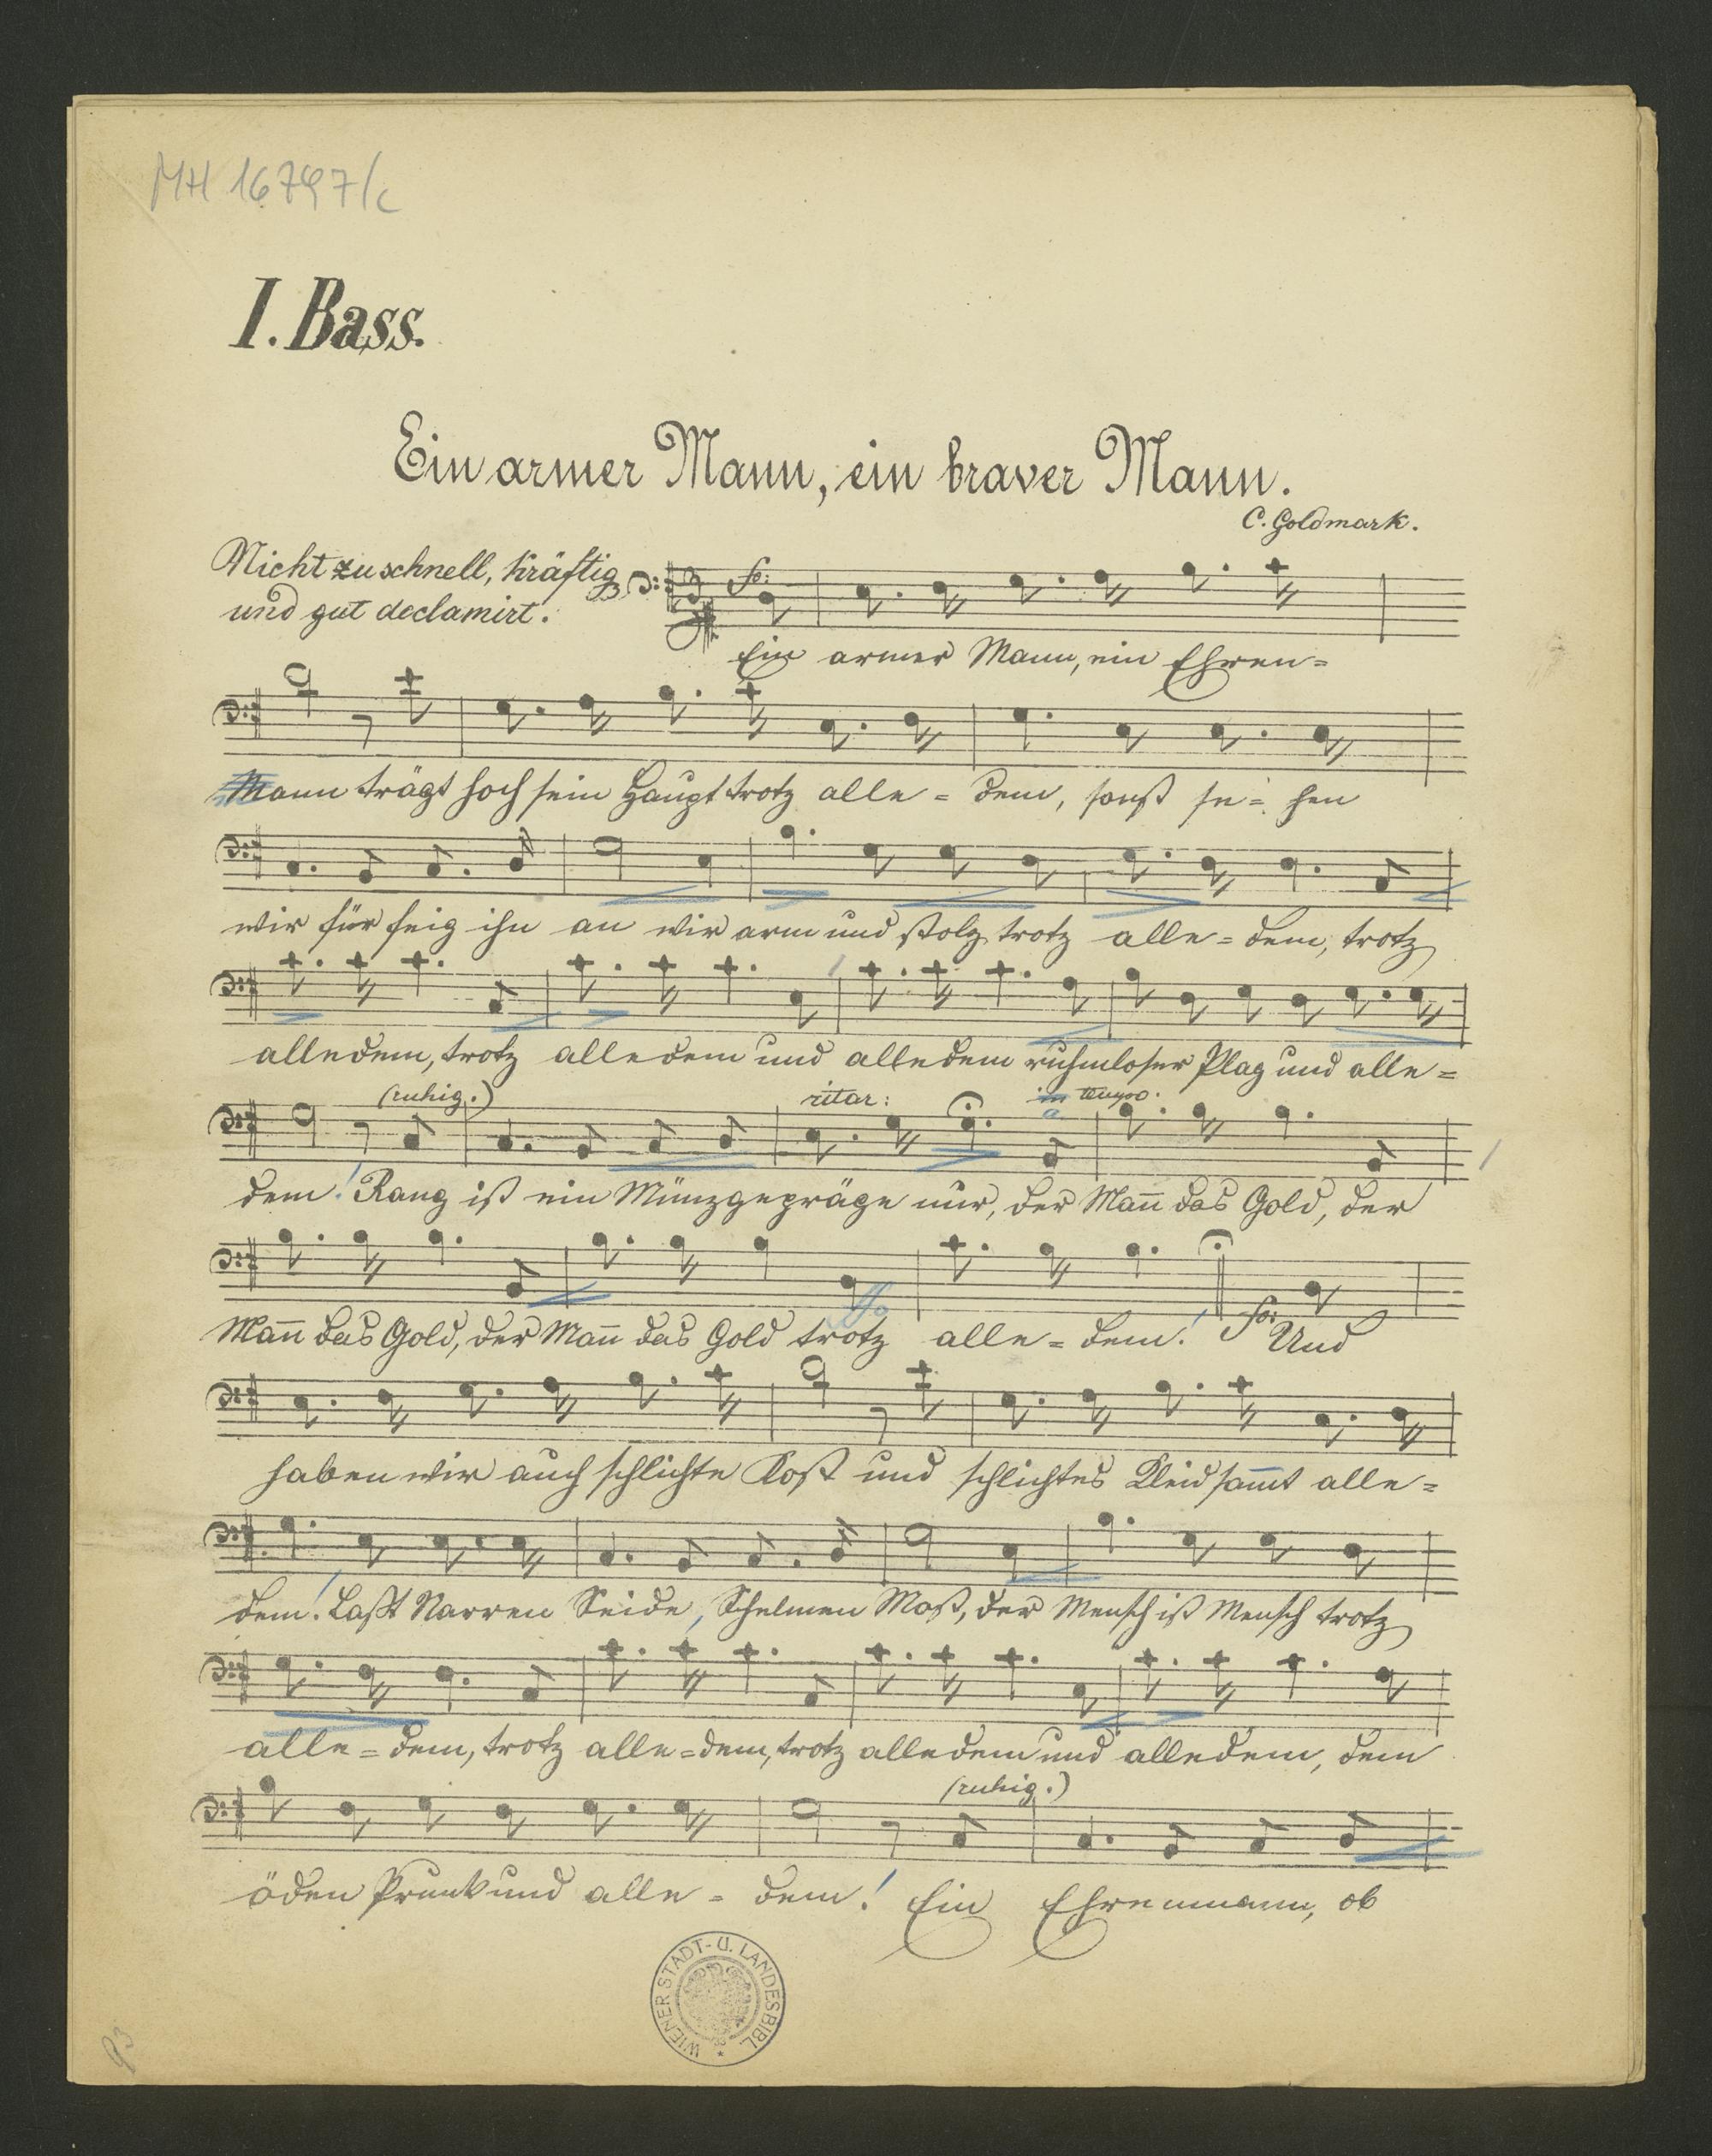 MH 16797/c
I. Bass.
Ein armer Mann, ein braver Mann.
C. Goldmark.
Nicht zu schnell, kräftig
und gut declamirt.
fo:
Ein armer Mann, ein Ehren=
Mann trägt hoch sein Haupt trotz alle = dem, sonst se = hen
wir für feig ihn an wir arm und stolz trotz alle = dem, trotz
alledem, trotz alledem und alledem ruhmloser Plag und alle =
(ruhig.) ritar: a tempo.
dem! Rang ist ein Münzgepräge nur, der Man̅ das Gold, der
Man̅ das Gold, der Man̅ das Gold trotz alle = dem! fo: Und
haben wir auch schlichte Kost und schlichtes Kleid sam̅t alle =
dem! Laßt Narren Seide, Schelmen Most, der Mensch ist Mensch trotz
alle = dem, trotz alle = dem, trotz alledem und alledem, dem
(ruhig.)
öden Prunk und alle = dem! Ein Ehrenmann, ob
WIENER STADT- U. LANDESBIBL.